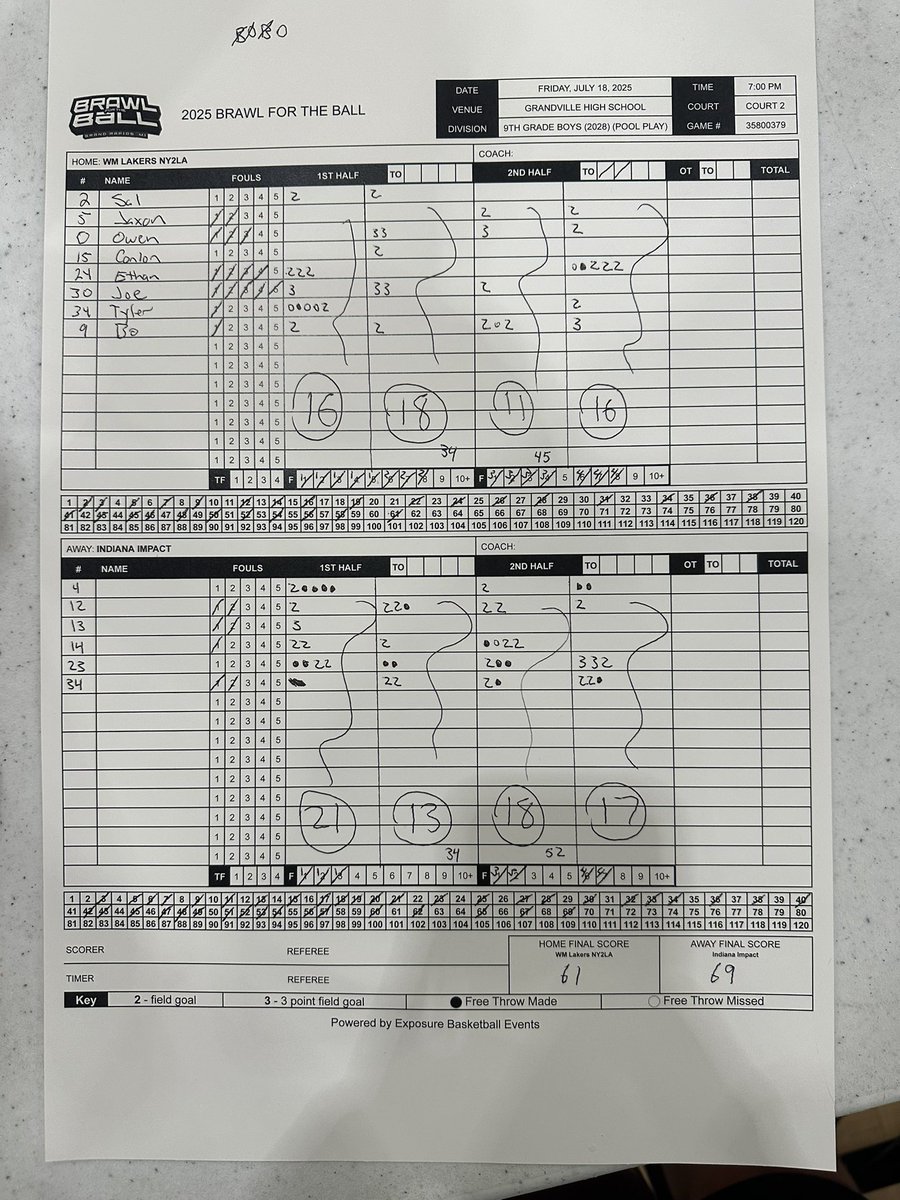 BRAWL FOR THE BALL
GRAND RAPIDS, MI
2025 BRAWL FOR THE BALL
DATE FRIDAY, JULY 18, 2025 TIME 7:00 PM
VENUE GRANDVILLE HIGH SCHOOL COURT COURT 2
DIVISION 9TH GRADE BOYS (2028) (POOL PLAY) GAME # 35800379
HOME: WM LAKERS NY2LA COACH:
# NAME FOULS 1ST HALF TO 2ND HALF TO OT TO TOTAL
2 Sal 1 2 3 4 5 2 2
5 Jaxon 1 2 3 4 5 2 2
0 Owen 1 2 3 4 5 33 3 2
15 Conlon 1 2 3 4 5 2
24 Ethan 1 2 3 4 5 222 ○●222
30 Joe 1 2 3 4 5 3 33 2
34 Tyler 1 2 3 4 5 ○○○○2 2
9 Bo 1 2 3 4 5 2 2 2○2 3
1 2 3 4 5
1 2 3 4 5
1 2 3 4 5
1 2 3 4 5
16 18 11 16
1 2 3 4 5
1 2 3 4 5
1 2 3 4 5 34 45
TF 1 2 3 4 F 1 2 3 4 5 6 7 8 9 10+ F 1 2 3 4 5 6 7 8 9 10+
1 2 3 4 5 6 7 8 9 10 11 12 13 14 15 16 17 18 19 20 21 22 23 24 25 26 27 28 29 30 31 32 33 34 35 36 37 38 39 40
41 42 43 44 45 46 47 48 49 50 51 52 53 54 55 56 57 58 59 60 61 62 63 64 65 66 67 68 69 70 71 72 73 74 75 76 77 78 79 80
81 82 83 84 85 86 87 88 89 90 91 92 93 94 95 96 97 98 99 100 101 102 103 104 105 106 107 108 109 110 111 112 113 114 115 116 117 118 119 120
AWAY: INDIANA IMPACT COACH:
# NAME FOULS 1ST HALF TO 2ND HALF TO OT TO TOTAL
4 1 2 3 4 5 2●●●● 2 ●●
12 1 2 3 4 5 2 22● 22 2
13 1 2 3 4 5 3
14 1 2 3 4 5 22 2 ●○22
23 1 2 3 4 5 ●●22 ●● 2●● 332
34 1 2 3 4 5 22 2● 22●
1 2 3 4 5
1 2 3 4 5
1 2 3 4 5
1 2 3 4 5
1 2 3 4 5
1 2 3 4 5
21 13 18 17
1 2 3 4 5
1 2 3 4 5
1 2 3 4 5 34 52
TF 1 2 3 4 F 1 2 3 4 5 6 7 8 9 10+ F 1 2 3 4 5 6 7 8 9 10+
1 2 3 4 5 6 7 8 9 10 11 12 13 14 15 16 17 18 19 20 21 22 23 24 25 26 27 28 29 30 31 32 33 34 35 36 37 38 39 40
41 42 43 44 45 46 47 48 49 50 51 52 53 54 55 56 57 58 59 60 61 62 63 64 65 66 67 68 69 70 71 72 73 74 75 76 77 78 79 80
81 82 83 84 85 86 87 88 89 90 91 92 93 94 95 96 97 98 99 100 101 102 103 104 105 106 107 108 109 110 111 112 113 114 115 116 117 118 119 120
SCORER REFEREE HOME FINAL SCORE AWAY FINAL SCORE
WM Lakers NY2LA Indiana Impact
TIMER REFEREE 61 69
Key 2 - field goal 3 - 3 point field goal ● Free Throw Made ○ Free Throw Missed
Powered by Exposure Basketball Events